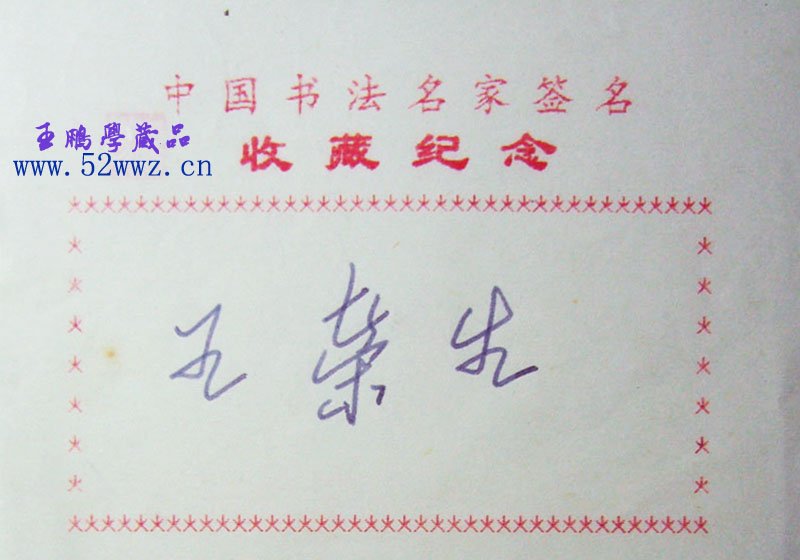 中国书法名家签名
王鹏學蔵品
收藏纪念
www.52wwz.cn
王荣生